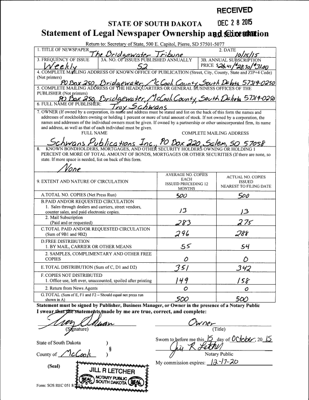 RECEIVED
DEC 28 2015
STATE OF SOUTH DAKOTA
Statement of Legal Newspaper Ownership and Circulation
Return to: Secretary of State, 500 E. Capitol, Pierre, SD 57501-5077
1. TITLE OF NEWSPAPER The Bridgewater Tribune
2. DATE 10/15/15
3. FREQUENCY OF ISSUE Weekly
3A. NO. OF ISSUES PUBLISHED ANNUALLY 52
3B. ANNUAL SUBSCRIPTION PRICE
4. COMPLETE MAILING ADDRESS OF KNOWN OFFICE OF PUBLICATION (Street, City, County, State and ZIP+4 Code)
(Not printers) PO Box 250, Bridgewater, McCook County, South Dakota 57319-0250
5. COMPLETE MAILING ADDRESS OF THE HEADQUARTERS OR GENERAL BUSINESS OFFICES OF THE
PUBLISHER (Not printers) PO Box 250, Bridgewater, McCook County, South Dakota 57319-0250
6. FULL NAME OF PUBLISHER: Troy Schwans
7. OWNER (If owned by a corporation, its name and address must be stated and list on the back of this form the names and
addresses of stockholders owning or holding 1 percent or more of total amount of stock. If not owned by a corporation, the
names and addresses of the individual owners must be given. If owned by a partnership or other unincorporated firm, its name
and address, as well as that of each individual must be given.
FULL NAME COMPLETE MAILING ADDRESS
Schwans Publications Inc., PO Box 220, Salem, SD 57058
8. KNOWN BONDHOLDERS, MORTGAGES, AND OTHER SECURITY HOLDERS OWNING OR HOLDING 1
PERCENT OR MORE TO TOTAL AMOUNT OF BONDS, MORTGAGES OR OTHER SECURITIES (If there are none, so
state. If more space is needed, list on back of this form.
None
9. EXTENT AND NATURE OF CIRCULATION
AVERAGE NO. COPIES EACH ISSUED PRECEDING 12 MONTHS
ACTUAL NO. COPIES ISSUED NEAREST TO FILING DATE
A. TOTAL NO. COPIES (Net Press Run) 500 500
B. PAID AND/OR REQUESTED CIRCULATION
1. Sales through dealers and carriers, street vendors,
counter sales, and paid electronic copies. 13 13
2. Mail Subscription
(Paid and or requested) 283 275
C. TOTAL PAID AND/OR REQUESTED CIRCULATION
(Sum of 9B1 and 9B2) 296 288
D. FREE DISTRIBUTION
1. BY MAIL, CARRIER OR OTHER MEANS 55 54
2. SAMPLES, COMPLIMENTARY AND OTHER FREE
COPIES 0 0
E. TOTAL DISTRIBUTION (Sum of C, D1 and D2) 351 342
F. COPIES NOT DISTRIBUTED
1. Office use, left over, unaccounted, spoiled after printing 149 158
2. Return from News Agents 0 0
G. TOTAL (Sum of E, F1 and F2 – Should equal net press run
shown in A) 500 500
Statement must be signed by Publisher, Business Manager, or Owner in the presence of a Notary Public
I swear that the statements made by me are true, correct, and complete:
Owner
(Signature) (Title)
State of South Dakota )
Sworn to before me this 15 day of October, 2015
County of McCook )
Notary Public
(Seal)
My commission expires: 12-17-20
JILL R LETCHER
NOTARY PUBLIC
SOUTH DAKOTA
SEAL
SEAL